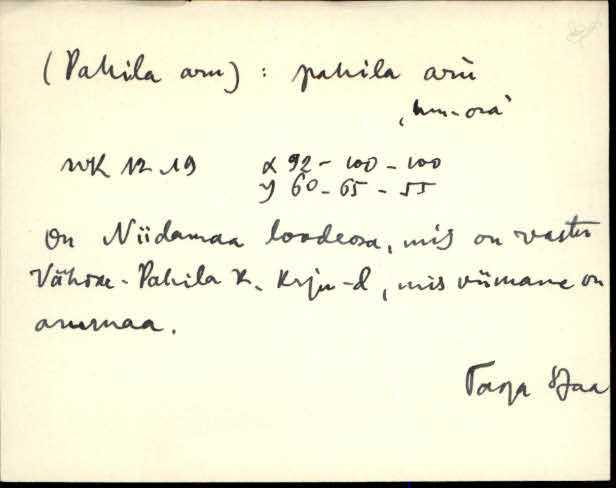 (Pahila aru) : pahila arŭ
WK 12.19 x 92 - 100 - 100
y 60 - 65 - 55
On Niidamaa loodeosa, mis on vastu
Vähise-Pahila k. karju-d, mis viimane on
arumaa.
Tarja